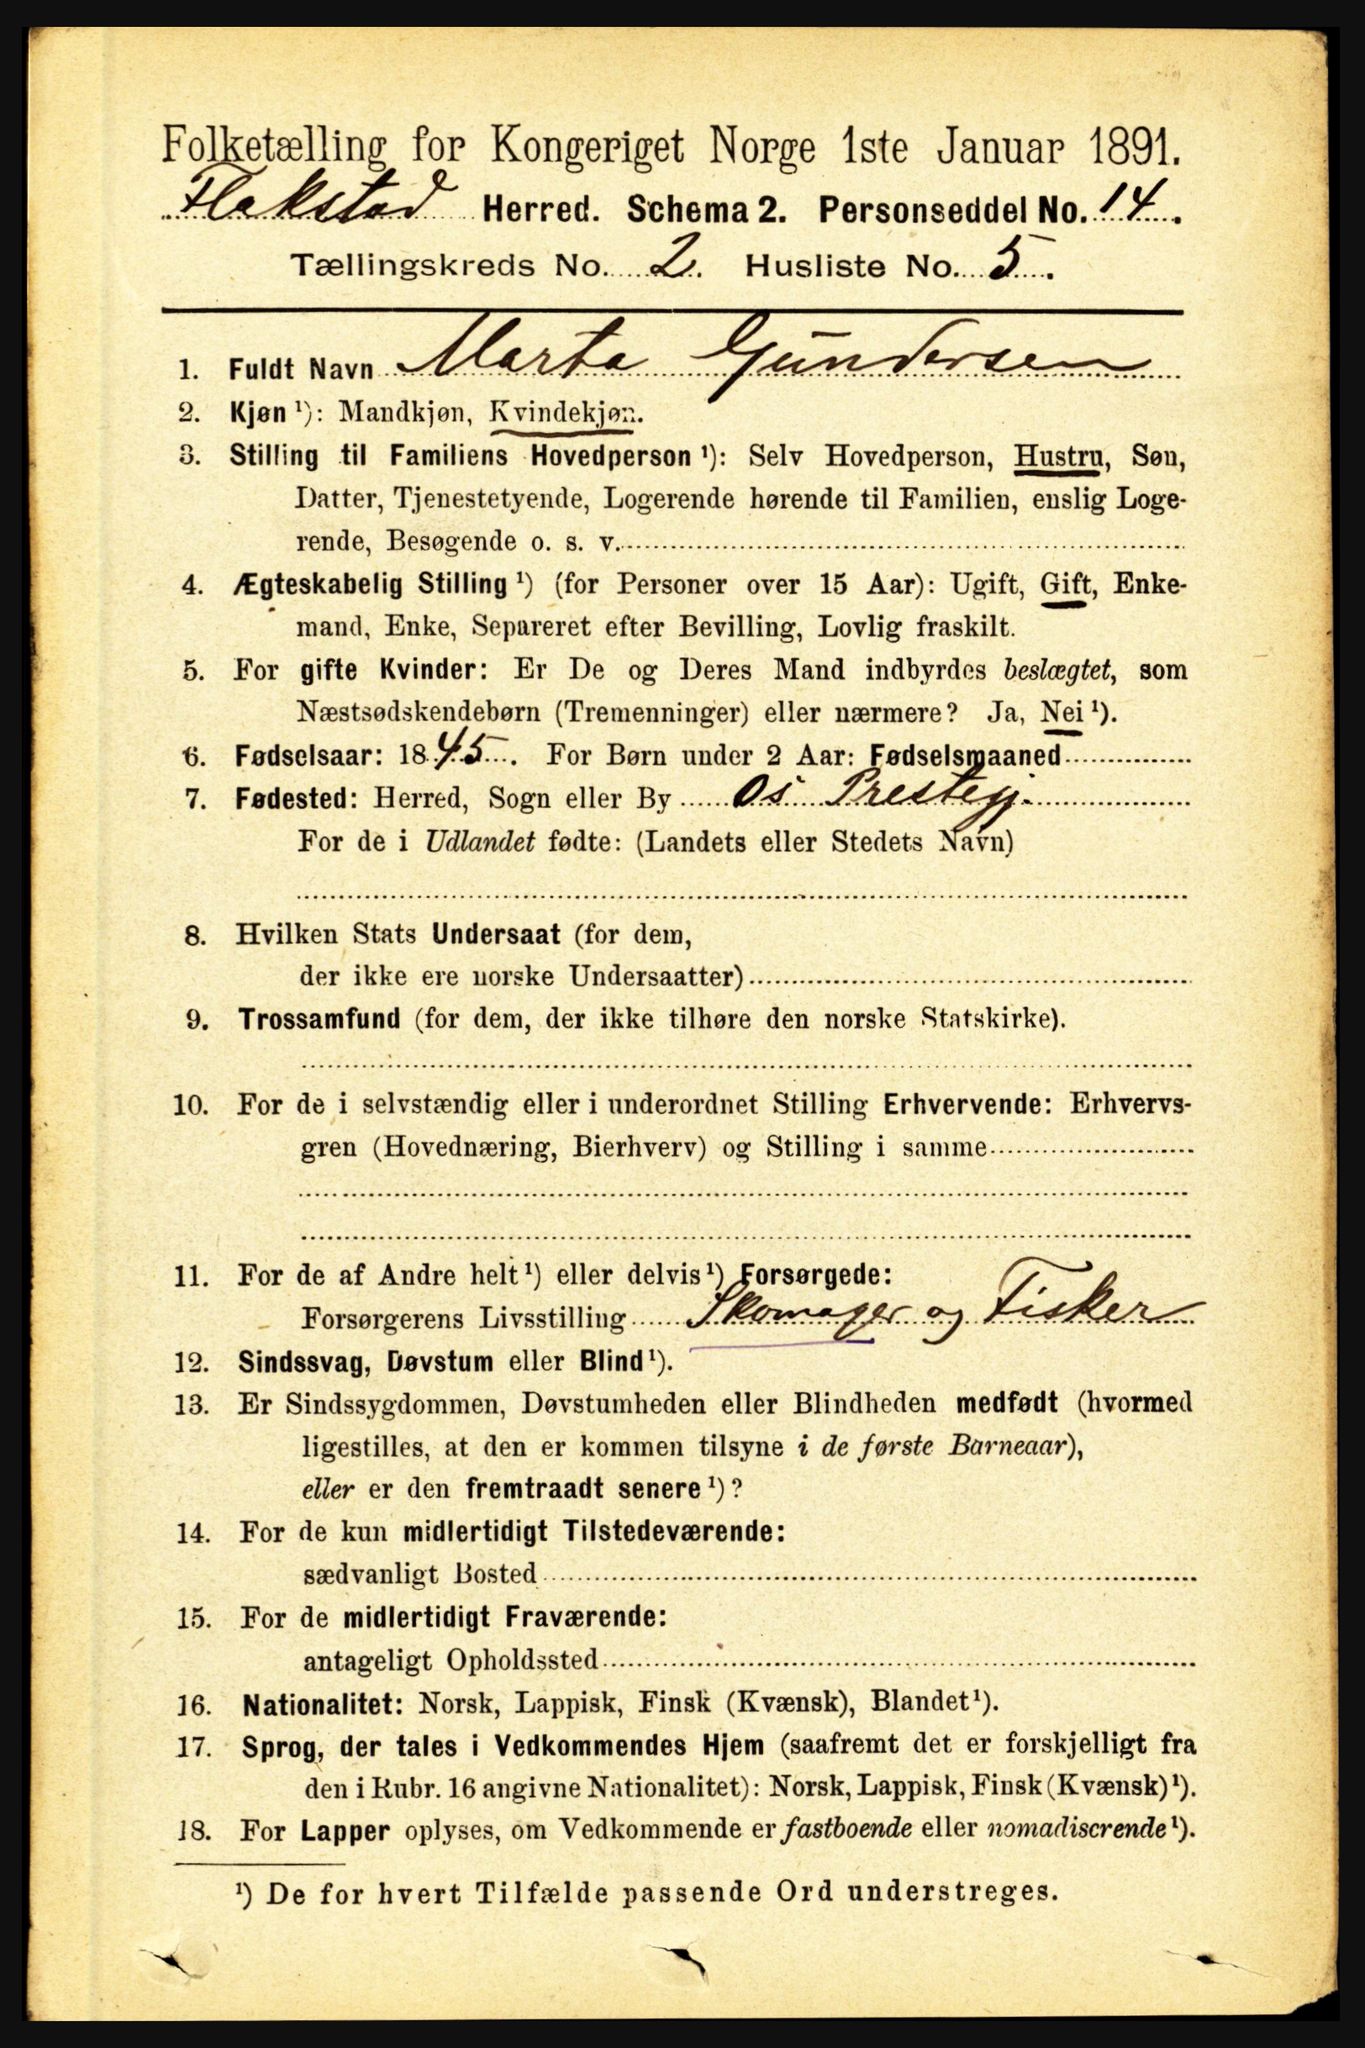 Folketælling for Kongeriget Norge 1ste Januar 1891.
Flakstad Herred. Schema 2. Personseddel No. 14.
Tællingskreds No. 2. Husliste No. 5.
1. Fuldt Navn Marta Gundersen
2. Kjøn ¹): Mandkjøn, Kvindekjøn.
3. Stilling til Familiens Hovedperson ¹): Selv Hovedperson, Hustru, Søn,
Datter, Tjenestetyende, Logerende hørende til Familien, enslig Loge-
rende, Besøgende o. s. v.
4. Ægteskabelig Stilling ¹) (for Personer over 15 Aar): Ugift, Gift, Enke-
mand, Enke, Separeret efter Bevilling, Lovlig fraskilt.
5. For gifte Kvinder: Er De og Deres Mand indbyrdes beslægtet, som
Næstsødskendebørn (Tremenninger) eller nærmere? Ja, Nei ¹).
6. Fødselsaar: 1845. For Børn under 2 Aar: Fødselsmaaned
7. Fødested: Herred, Sogn eller By Os Prestegj.
For de i Udlandet fødte: (Landets eller Stedets Navn)
8. Hvilken Stats Undersaat (for dem,
der ikke ere norske Undersaatter)
9. Trossamfund (for dem, der ikke tilhøre den norske Statskirke).
10. For de i selvstændig eller i underordnet Stilling Erhvervende: Erhvervs-
gren (Hovednæring, Bierhverv) og Stilling i samme
11. For de af Andre helt ¹) eller delvis ¹) Forsørgede:
Forsørgerens Livsstilling Skomager og Fisker
12. Sindssvag, Døvstum eller Blind ¹).
13. Er Sindssygdommen, Døvstumheden eller Blindheden medfødt (hvormed
ligestilles, at den er kommen tilsyne i de første Barneaar),
eller er den fremtraadt senere ¹)?
14. For de kun midlertidigt Tilstedeværende:
sædvanligt Bosted
15. For de midlertidigt Fraværende:
antageligt Opholdssted
16. Nationalitet: Norsk, Lappisk, Finsk (Kvænsk), Blandet ¹).
17. Sprog, der tales i Vedkommendes Hjem (saafremt det er forskjelligt fra
den i Rubr. 16 angivne Nationalitet): Norsk, Lappisk, Finsk (Kvænsk) ¹).
18. For Lapper oplyses, om Vedkommende er fastboende eller nomadiserende ¹).
¹) De for hvert Tilfælde passende Ord understreges.